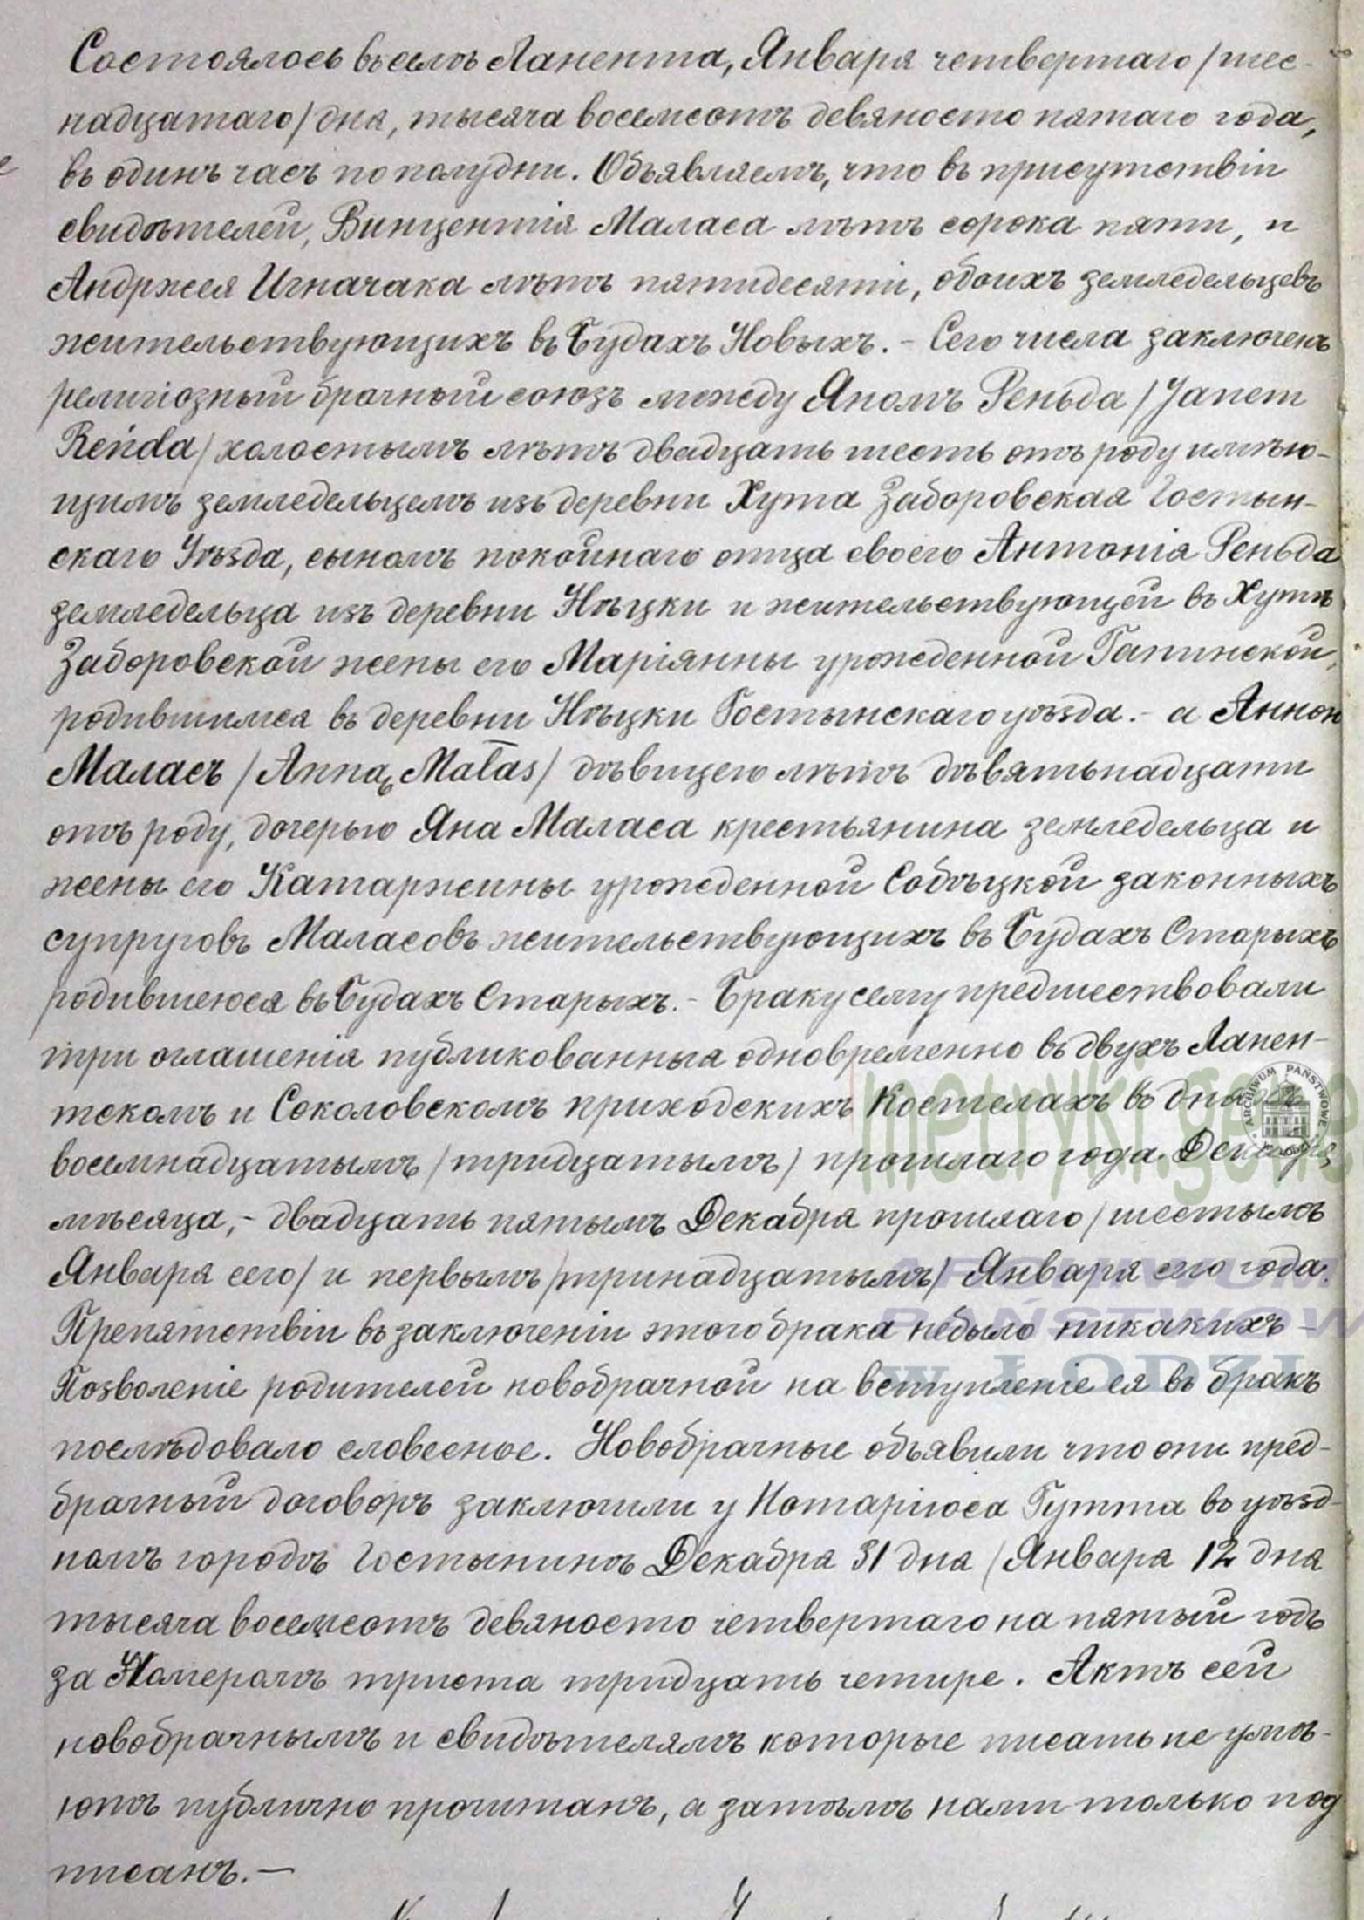 Состоялось въ селѣ Ланента, Января четвертаго /шес-
надцатаго/ дня, тысяча восемсотъ девяносто пятаго года,
въ одинъ часъ по полудни. Объявляемъ, что въ присутствіи
свидѣтелей, Винцентія Маласа лѣтъ сорока пяти, и
Андржея Игначака лѣтъ пятидесяти, обоихъ земледельцевъ
жительствующихъ въ Будахъ Новыхъ. - Сего числа заключенъ
религіозный брачный союзъ между Яномъ Реньда /Janem
Reńda/ холостымъ лѣтъ двадцать шесть отъ роду имѣю-
щимъ земледельцемъ изъ деревни Хута Заборовская Гостын-
скаго Уѣзда, сыномъ покойнаго отца своего Антонія Реньда
земледельца изъ деревни Нѣцки и жительствующей въ Хутѣ
Заборовской жены его Маріянны урожденной Гапинской,
родившимся въ деревни Нѣцки Гостынскаго уѣзда. - а Анною
Маласъ /Anną Małas/ дѣвицею лѣтъ дѣвятьнадцати
отъ роду, дочерью Яна Маласа крестьянина земледельца и
жены его Катаржины урожденной Собѣцкой законныхъ
супруговъ Маласовъ жительствующихъ въ Будахъ Старыхъ
родившеюся въ Будахъ Старыхъ. - Браку сему предшествовали
три оглашенія публикованныя одновременно въ двухъ Ланен-
тскомъ и Соколовскомъ приходскихъ Костелахъ въ дняхъ
восемнадцатымъ /тридцатымъ/ прошлаго года Декабря
мѣсяца, - двадцать пятымъ Декабря прошлаго /шестымъ
Января сего/ и первымъ /тринадцатымъ/ Января сего года.
Препятствіи въ заключеніи этого брака небыло никакихъ -
Позволеніе родителей новобрачной на вступленіе ея въ бракъ
послѣдовало словесное. Новобрачные объявили что они пред-
брачный договоръ заключили у Нотаріюса Гутта въ уѣзд-
номъ городѣ Гостынинѣ Декабря 31 дня /Января 12 дня
тысяча восемсотъ девяносто четвертаго на пятый годъ
за Номеромъ триста тридцать четире. Актъ сей
новобрачнымъ и свидѣтелямъ которые писать не умѣ-
ютъ публично прочитанъ, а затѣмъ нами только под
писанъ. -
metryki.gene
ARCHIWUM PAŃSTWOWE
ARCHIWUM
PAŃSTWOW
W ŁODZI